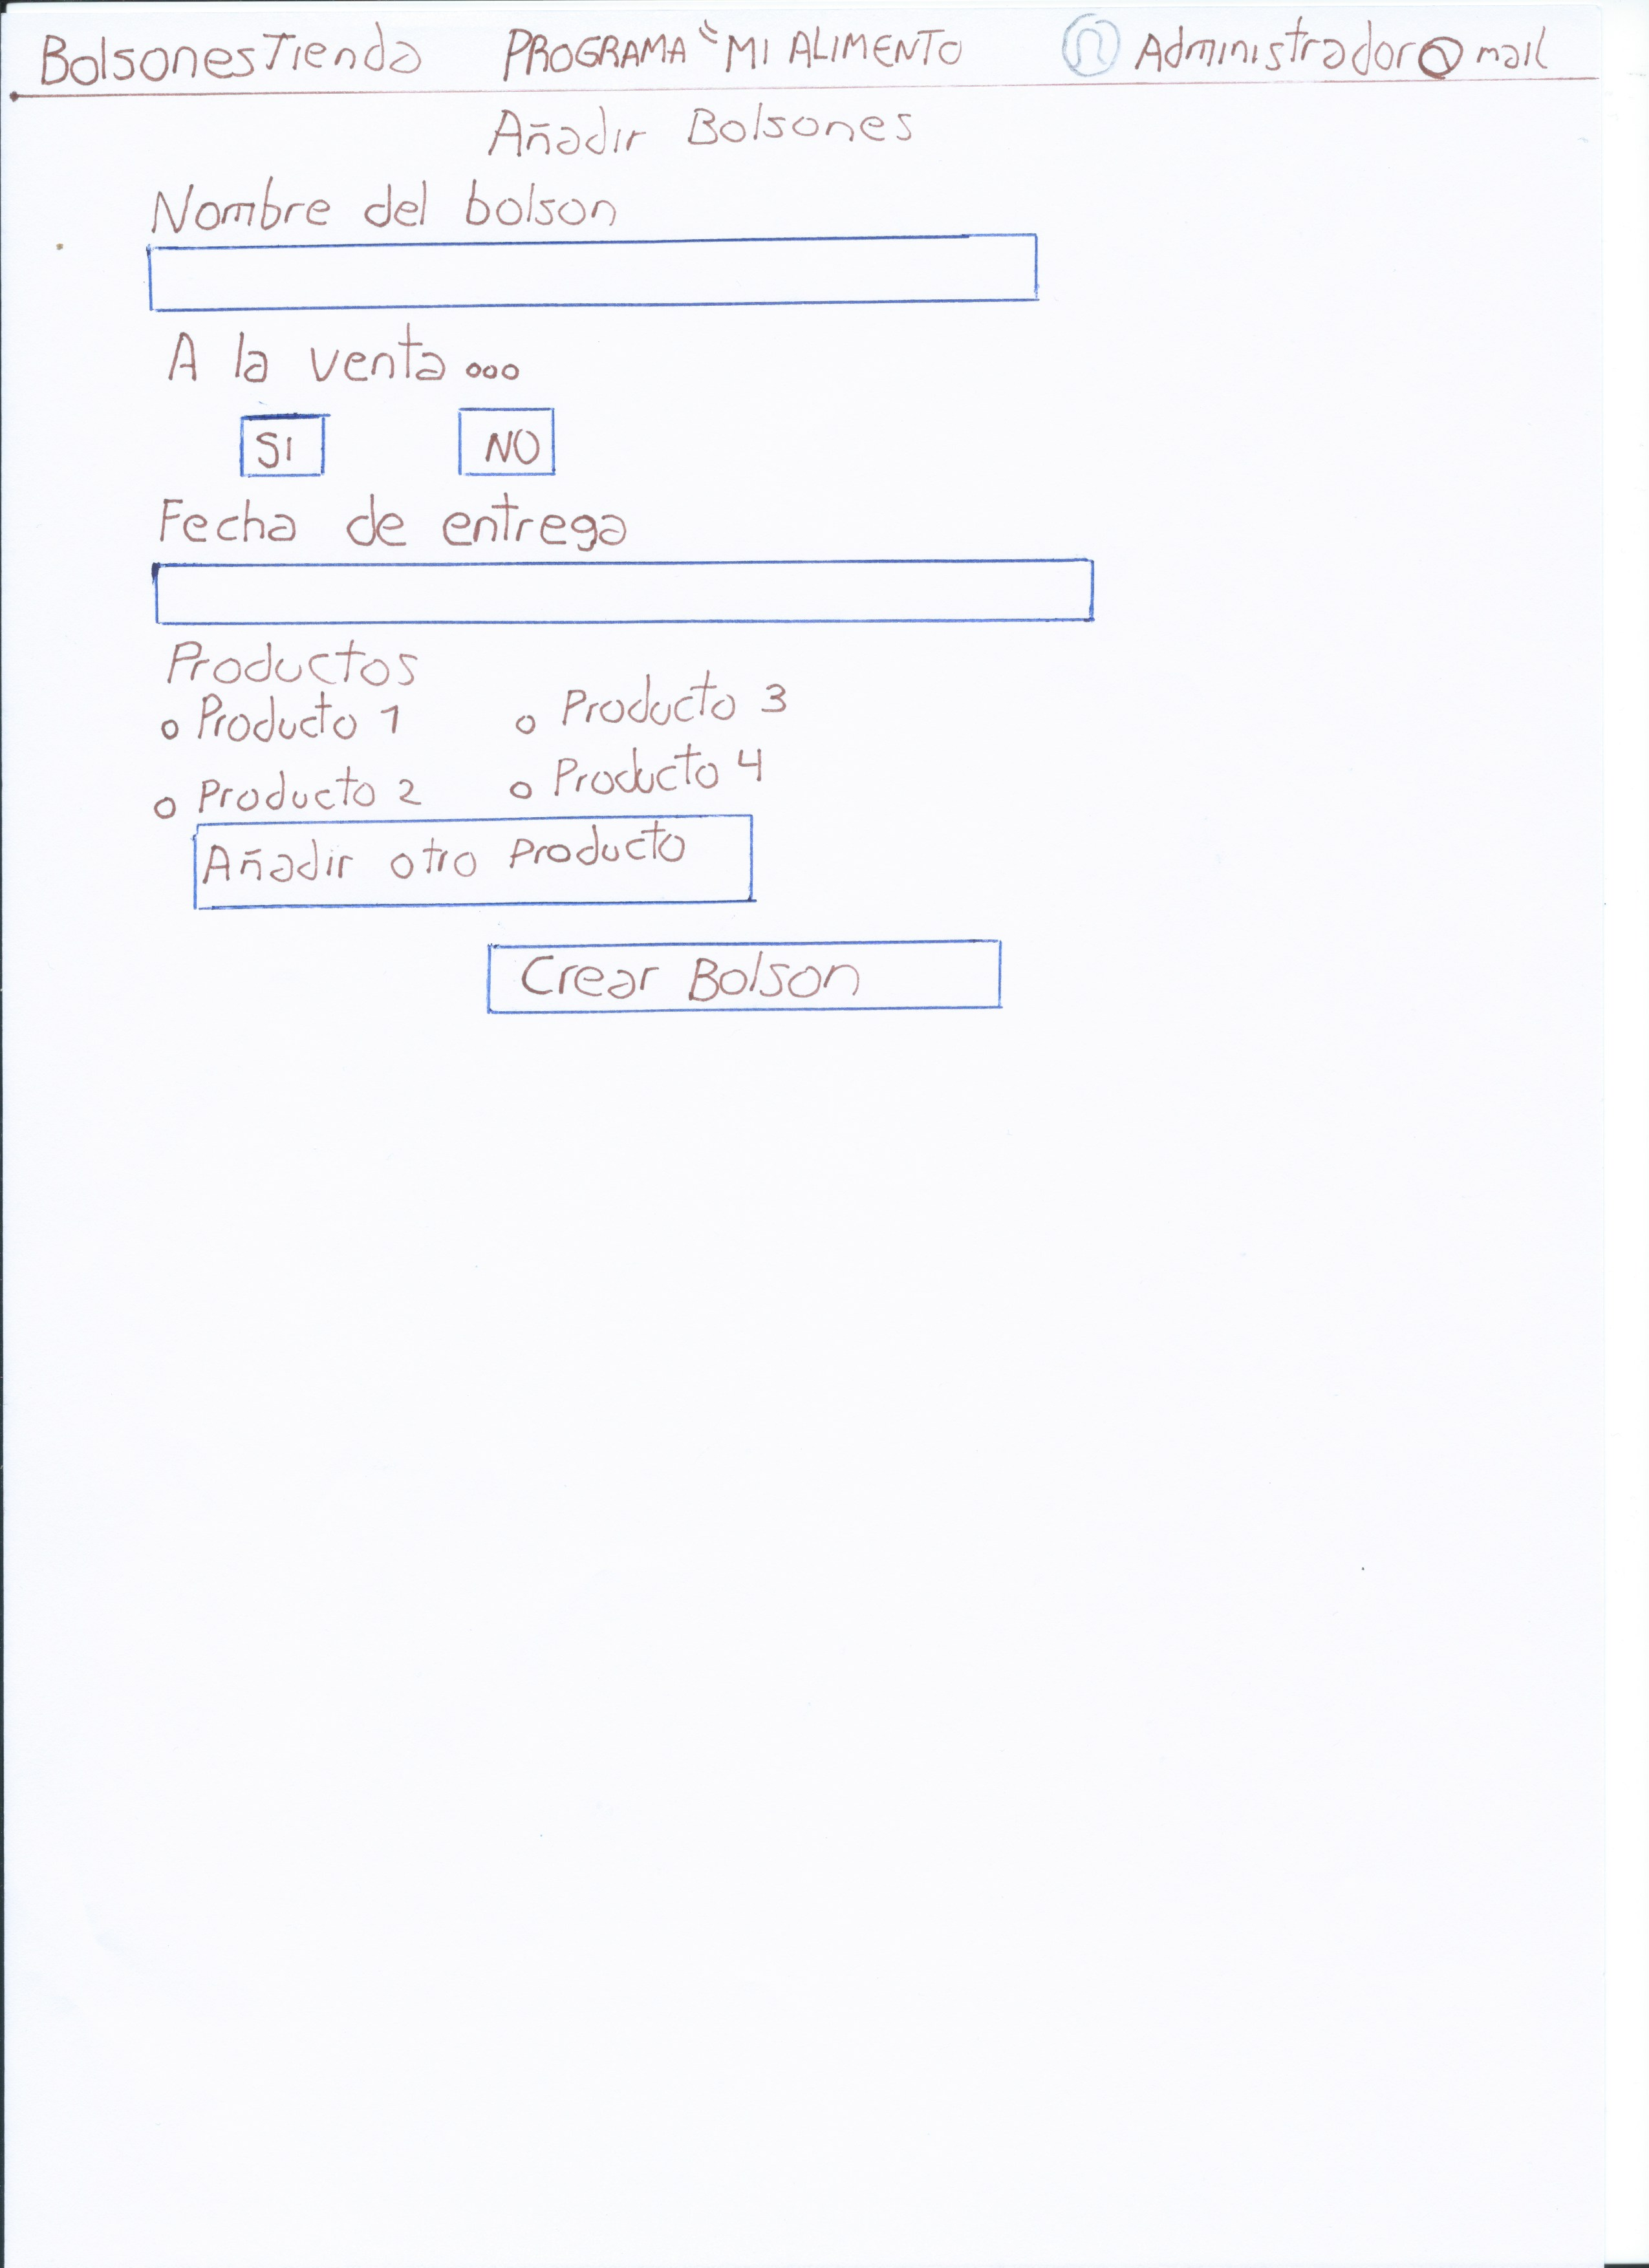 BolsonesTienda PROGRAMA "MI ALIMENTO Administrador@mail
Añadir Bolsones
Nombre del bolson
A la venta...
SI NO
Fecha de entrega
Productos
Producto 1 Producto 3
Producto 2 Producto 4
Añadir otro Producto
Crear Bolson